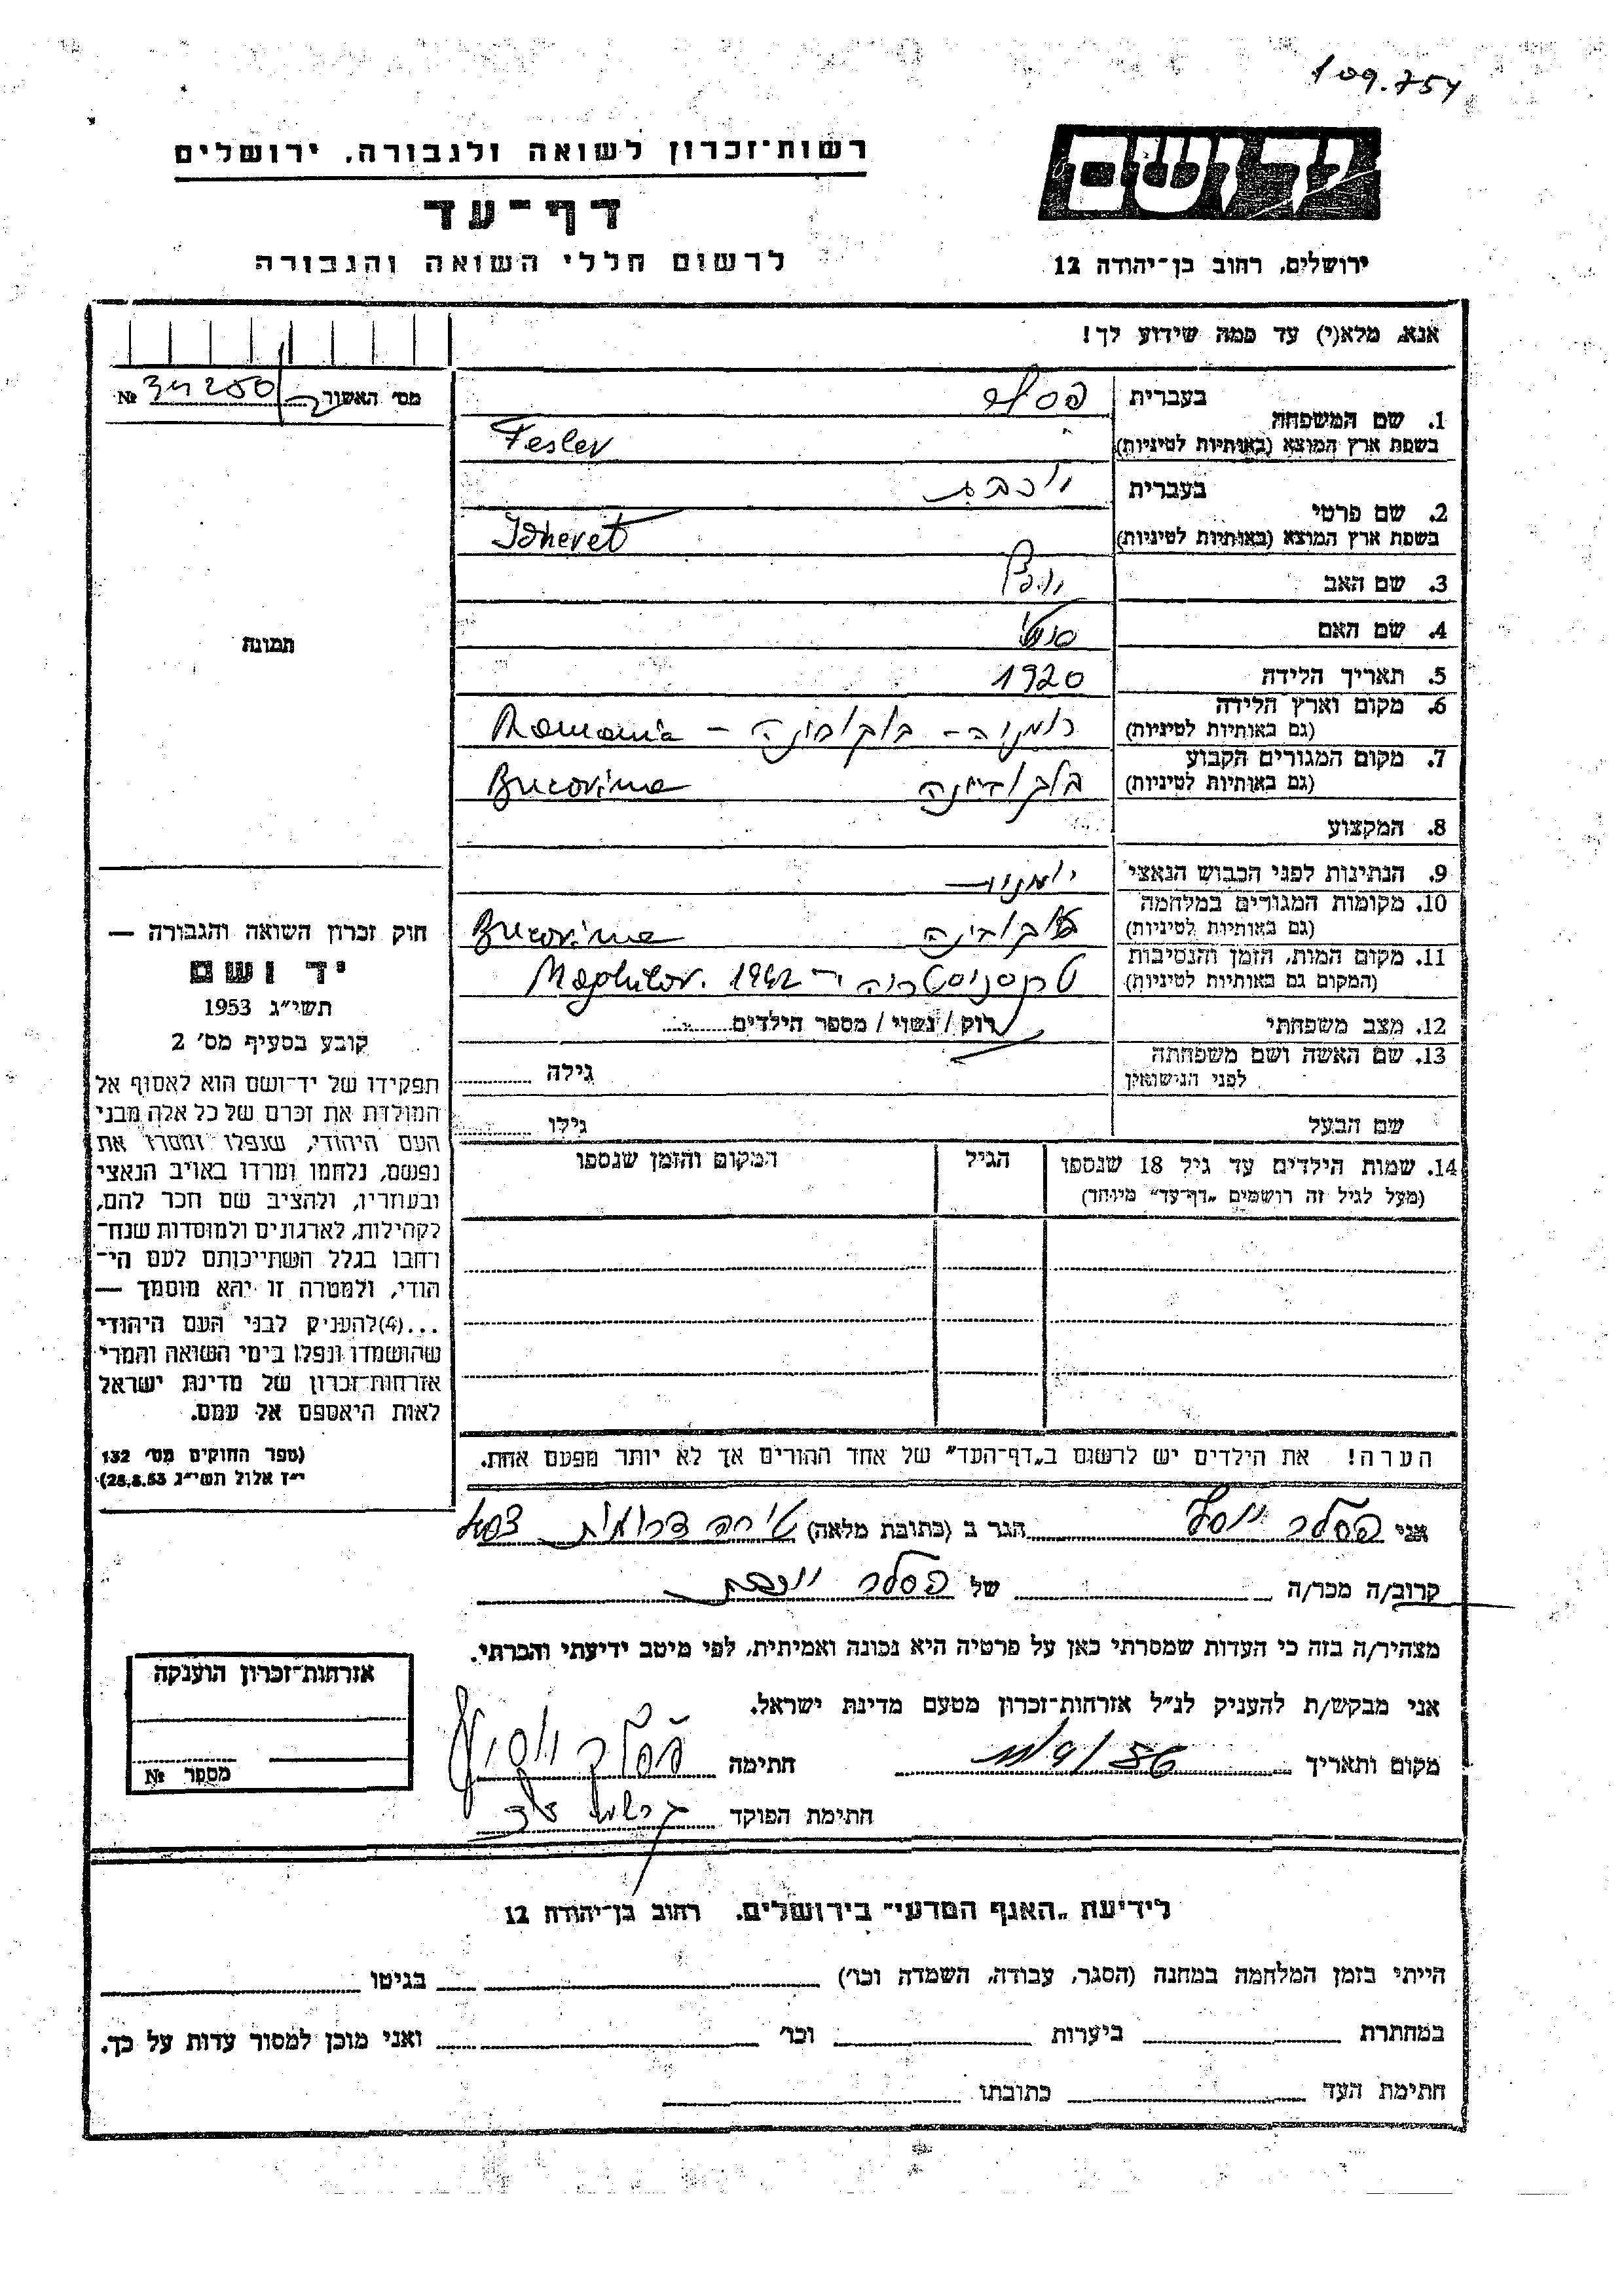 109.754
רשות-זכרון לשואה ולגבורה, ירושלים
דף-עד
לרשום חללי השואה והגבורה
ידושם
ירושלים, רחוב בן-יהודה 12
אנא, מלא(י) עד כמה שידוע לך!
מס' האשור № 34250
1. שם המשפחה
בעברית פסלר
בשפת ארץ המוצא (באותיות לטיניות) Fesler
2. שם פרטי
בעברית יוכבת
בשפת ארץ המוצא (באותיות לטיניות)
3. שם האב
4. שם האם
5. תאריך הלידה 1920
6. מקום וארץ הלידה
(גם באותיות לטיניות) רומניה - בוקובינה - Romania
7. מקום המגורים הקבוע
(גם באותיות לטיניות) בוקובינה Bucovina
8. המקצוע
9. הנתינות לפני הכבוש הנאצי
10. מקומות המגורים במלחמה
(גם באותיות לטיניות) בוקובינה Bucovina
11. מקום המות, הזמן והנסיבות
(המקום גם באותיות לטיניות) טרנסניסטריה 1942
12. מצב משפחתי רוק / נשוי / מספר הילדים
13. שם האשה ושם משפחתה
לפני הנישואין גילה
שם הבעל גילו
14. שמות הילדים עד גיל 18 שנספו
(מעל לגיל זה רושמים "דף-עד" מיוחד)
הגיל
המקום והזמן שנספו
הערה! את הילדים יש לרשום ב"דף-העד" של אחד ההורים אך לא יותר מפעם אחת.
תמונה
חוק זכרון השואה והגבורה —
יד ושם
תשי"ג 1953
קובע בסעיף מס' 2
תפקידו של יד-ושם הוא לאסוף אל
המולדת את זכרם של כל אלה מבני
העם היהודי, שנפלו ומסרו את
נפשם, נלחמו ומרדו באויב הנאצי
ובעוזריו, ולהציב שם וזכר להם,
לקהילות, לארגונים ולמוסדות שנח-
רחבו בגלל השתייכותם לעם הי-
הודי, ולמטרה זו יהא מוסמך —
...(4)להעניק לבני העם היהודי
שהושמדו ונפלו בימי השואה והמרי
אזרחות-זכרון של מדינת ישראל
לאות היאספם אל עמם.
(ספר החוקים מס' 132
י"ז אלול תשי"ג 28.8.53)
אני פסלר יוסף הגר ב (כתובת מלאה) טירה דרומית
קרוב/ה מכר/ה של פסלר יוכבת
מצהיר/ה בזה כי העדות שמסרתי כאן על פרטיה היא נכונה ואמיתית, לפי מיטב ידיעתי והכרתי.
אני מבקש/ת להעניק לנ"ל אזרחות-זכרון מטעם מדינת ישראל.
מקום ותאריך חתימה פסלר יוסף
חתימת הפוקד
אזרחות-זכרון הוענקה
מספר №
לידיעת "האגף המדעי" בירושלים, רחוב בן-יהודה 12
הייתי בזמן המלחמה במחנה (הסגר, עבודה, השמדה וכו') בגיטו
במחתרת ביערות וכו' ואני מוכן למסור עדות על כך.
חתימת העד כתובתו